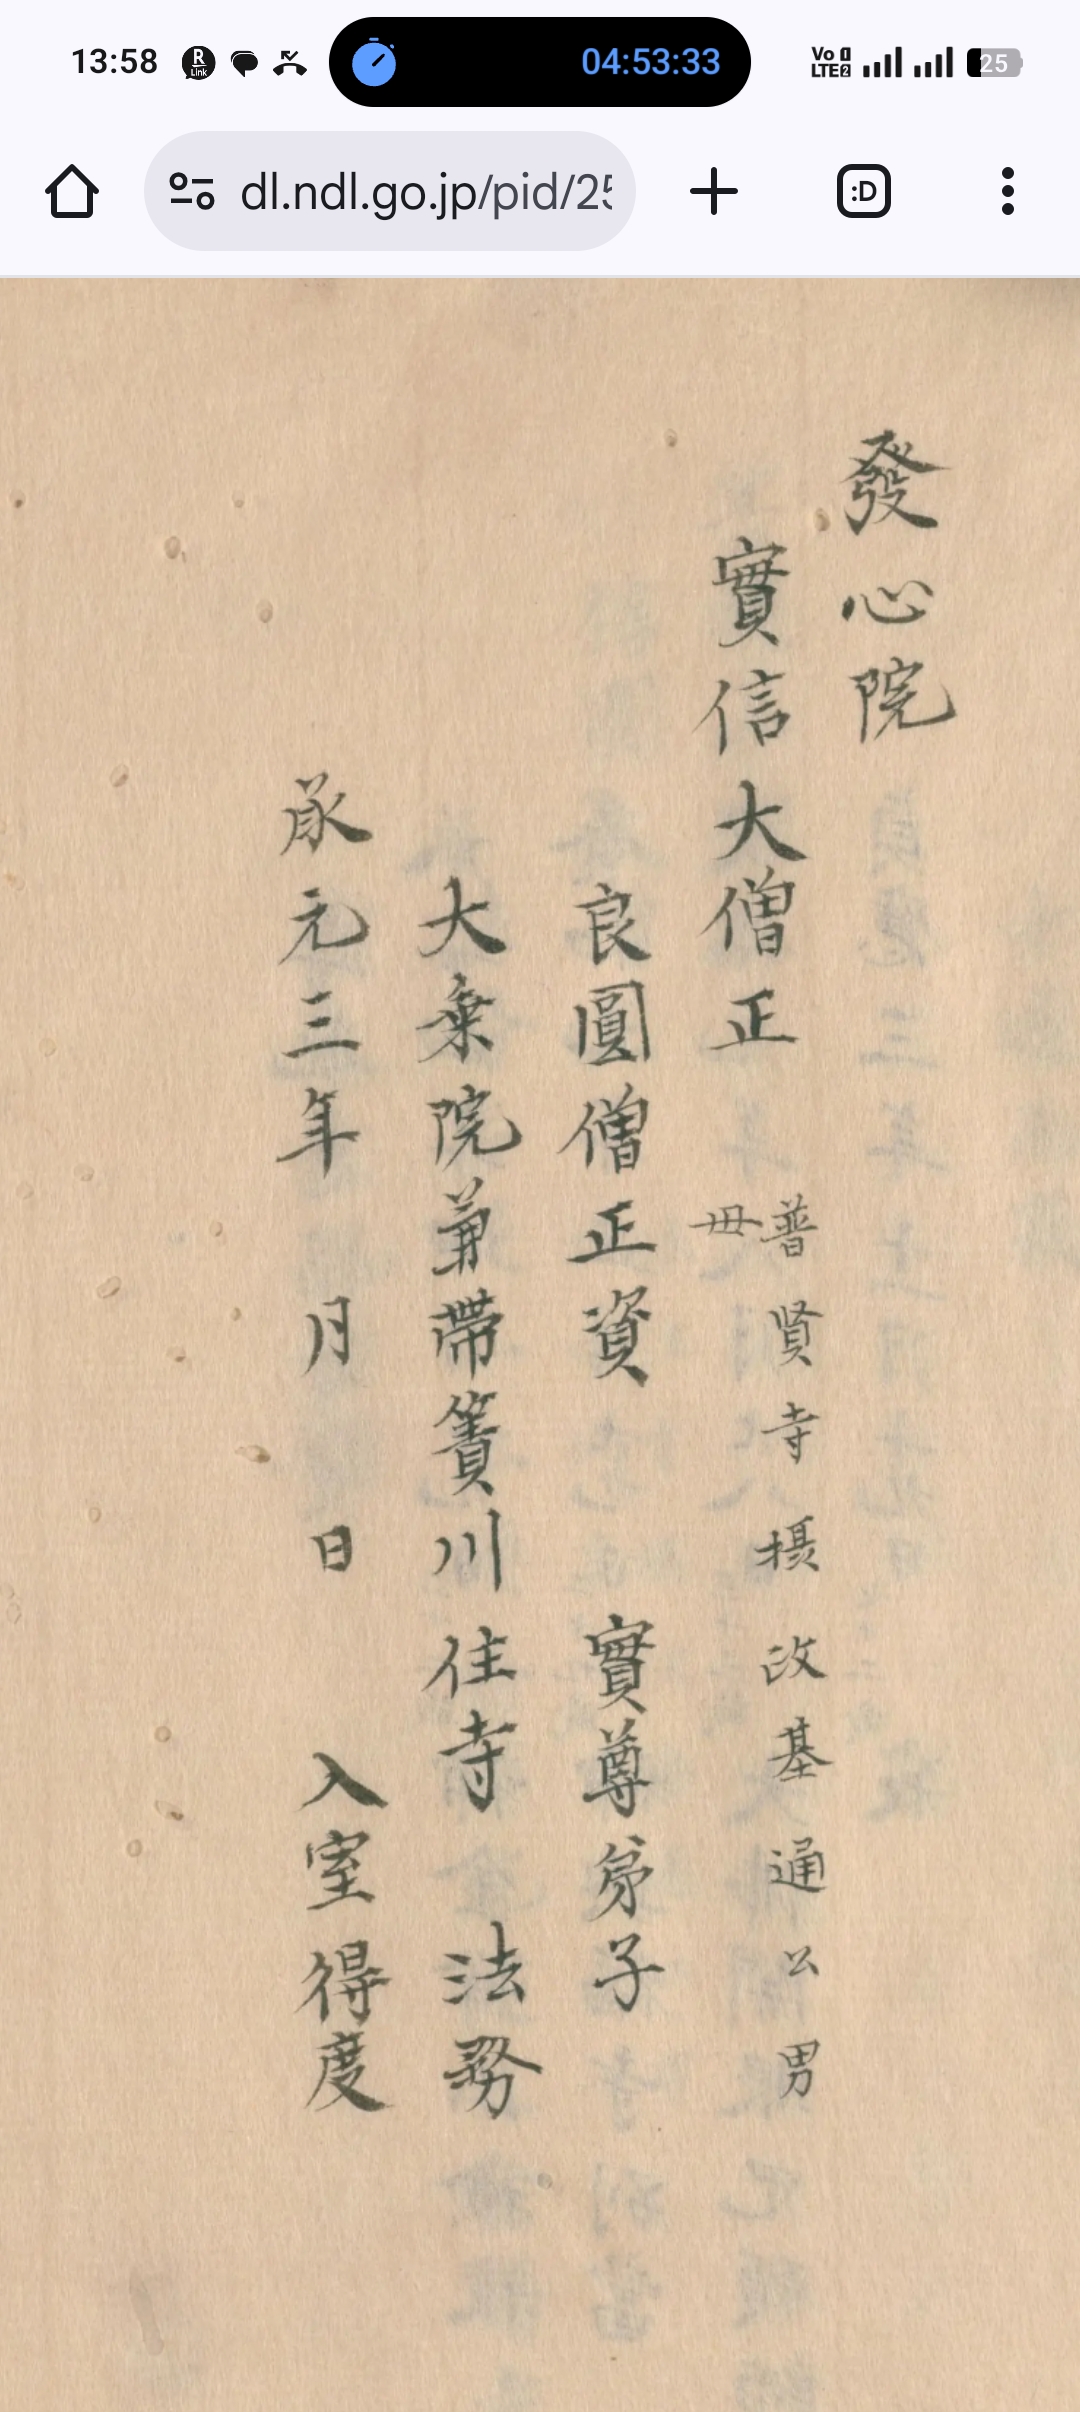 13:58
R
Link
04:53:33
Vo 1
LTE2
25
dl.ndl.go.jp/pid/25
:D
發心院
實信大僧正
普賢寺摂政基通公男
母
良圓僧正資 實尊弟子
大乗院兼帶簀川住寺 法務
承元三年 月 日 入室得度